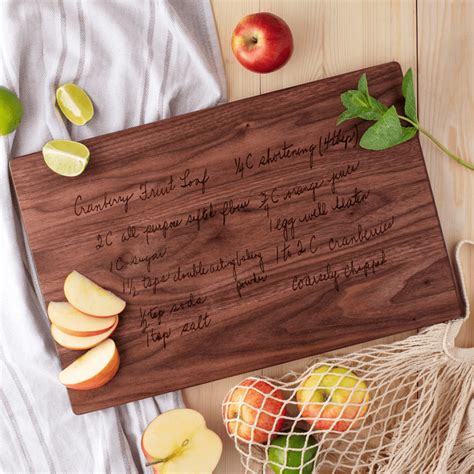 Cranberry Fruit Loaf
2C all purpose sifted flour
1C sugar
1½ tsps double acting baking powder
½ tsp soda
1 tsp salt
¼C shortening (4 tbsp)
¾C orange juice
1 egg well beaten
1 to 2 C cranberries
coarsely chopped